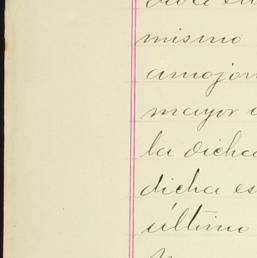 mismo
amojon
mayor
la dicha
dicha es
último